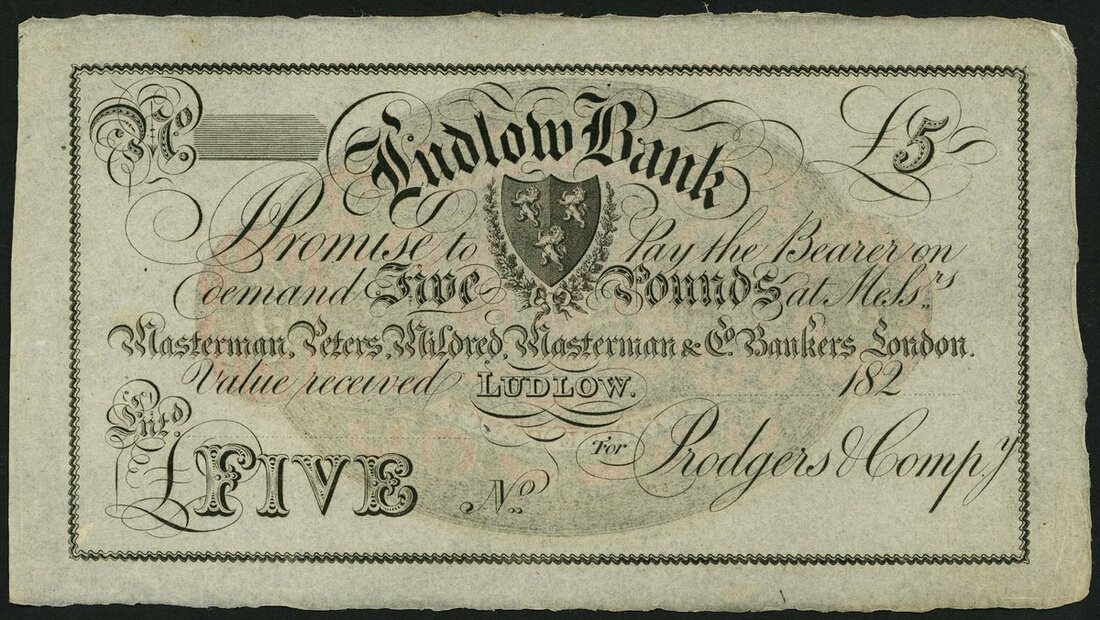 No. Ludlow Bank £5
I Promise to Pay the Bearer on
demand Five Pounds at Mess.rs
Masterman, Peters, Mildred, Masterman & Co. Bankers London.
Value received LUDLOW. 182
Entd.
For Rodgers & Compy
£FIVE No.